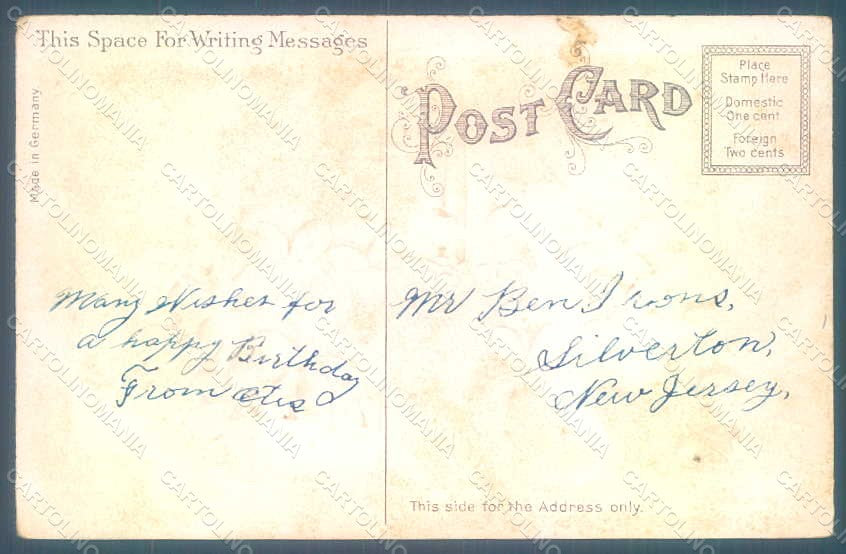 This Space For Writing Messages
Made in Germany.
POST CARD
Place
Stamp Here
Domestic
One cent
Foreign
Two cents
Many Wishes for
a happy Birthday
From Otis
Mr Ben Irons,
Silverton,
New Jersey,
This side for the Address only.
CARTOLINOMANIA